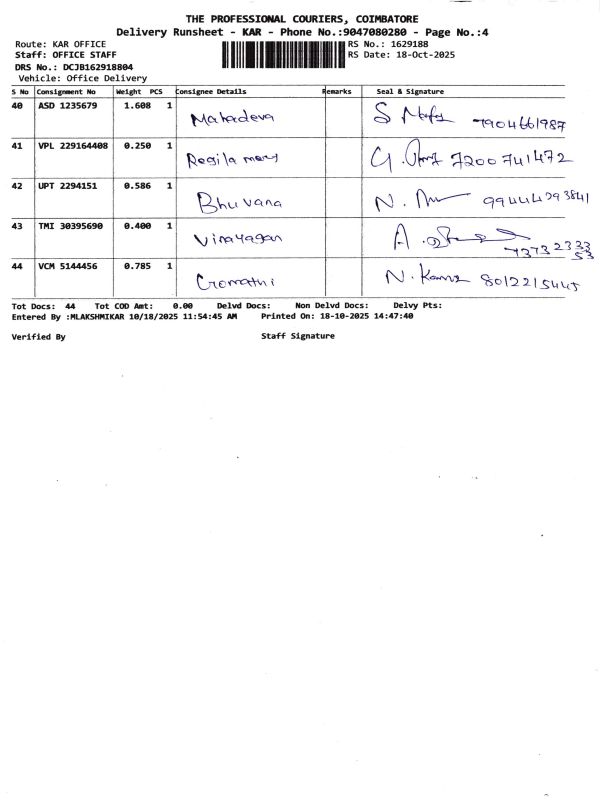 THE PROFESSIONAL COURIERS, COIMBATORE
Delivery Runsheet - KAR - Phone No.:9047080280 - Page No.:4
Route: KAR OFFICE RS No.: 1629188
Staff: OFFICE STAFF RS Date: 18-Oct-2025
DRS No.: DCJB162918804
Vehicle: Office Delivery
S No Consignment No Weight PCS Consignee Details Remarks Seal & Signature
40 ASD 1235679 1.608 1 Mahadeva S 7904661987
41 VPL 229164408 0.250 1 Regila mery G. 7200741472
42 UPT 2294151 0.586 1 Bhuvana N.
43 TMI 30395690 0.400 1 Vinayagan A. 7373233353
44 VCM 5144456 0.785 1 Gomathi N.
Tot Docs: 44 Tot COD Amt: 0.00 Delvd Docs: Non Delvd Docs: Delvy Pts:
Entered By :MLAKSHMIKAR 10/18/2025 11:54:45 AM Printed On: 18-10-2025 14:47:40
Verified By Staff Signature